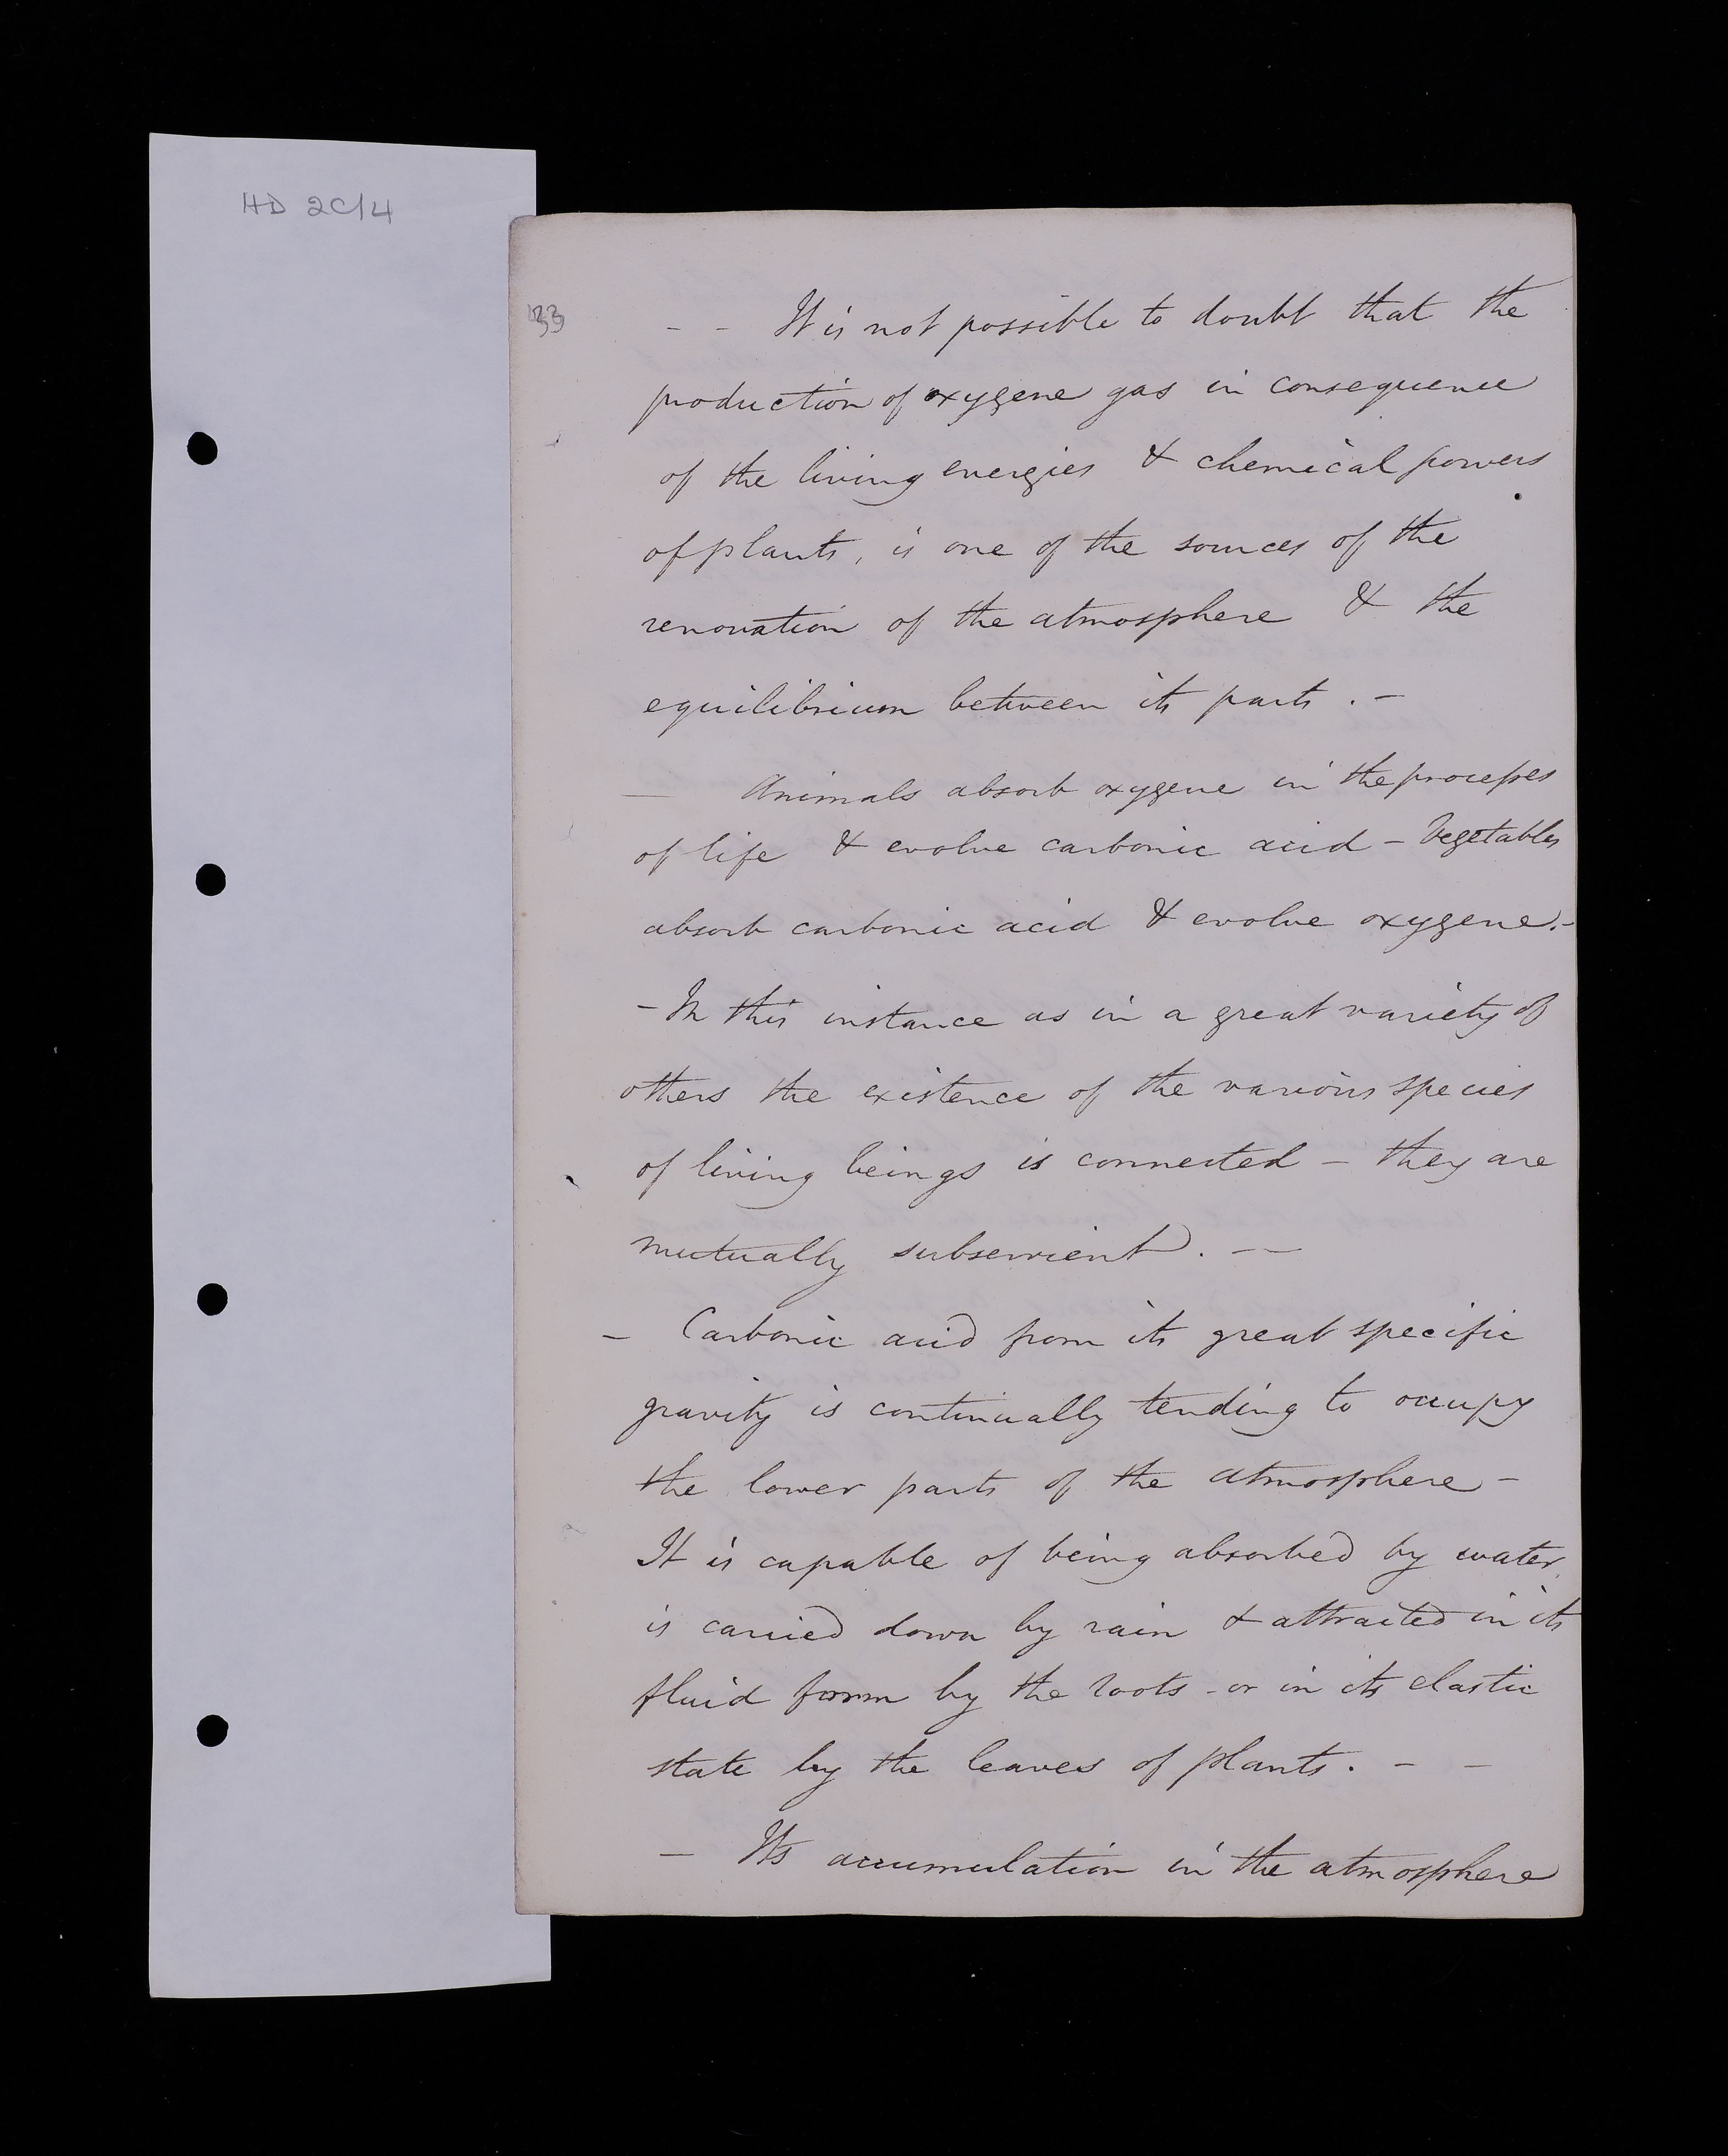 HD 2C/4
33
- - It is not possible to doubt that the
production of oxygene gas in consequence
of the living energies & chemical powers
of plants, is one of the sources of the
renovation of the atmosphere & the
equilibrium between its parts. -
— Animals absorb oxygene in the processes
of life & evolve carbonic acid - Vegetables
absorb carbonic acid & evolve oxygene. -
- In this instance as in a great variety of
others the existence of the various species
of living beings is connected - they are
mutually subservient. - -
- Carbonic acid from its great specific
gravity is continually tending to occupy
the lower parts of the atmosphere -
It is capable of being absorbed by water,
is carried down by rain & attracted in its
fluid form by the roots - or in its elastic
state by the leaves of plants. - -
- Its accumulation in the atmosphere